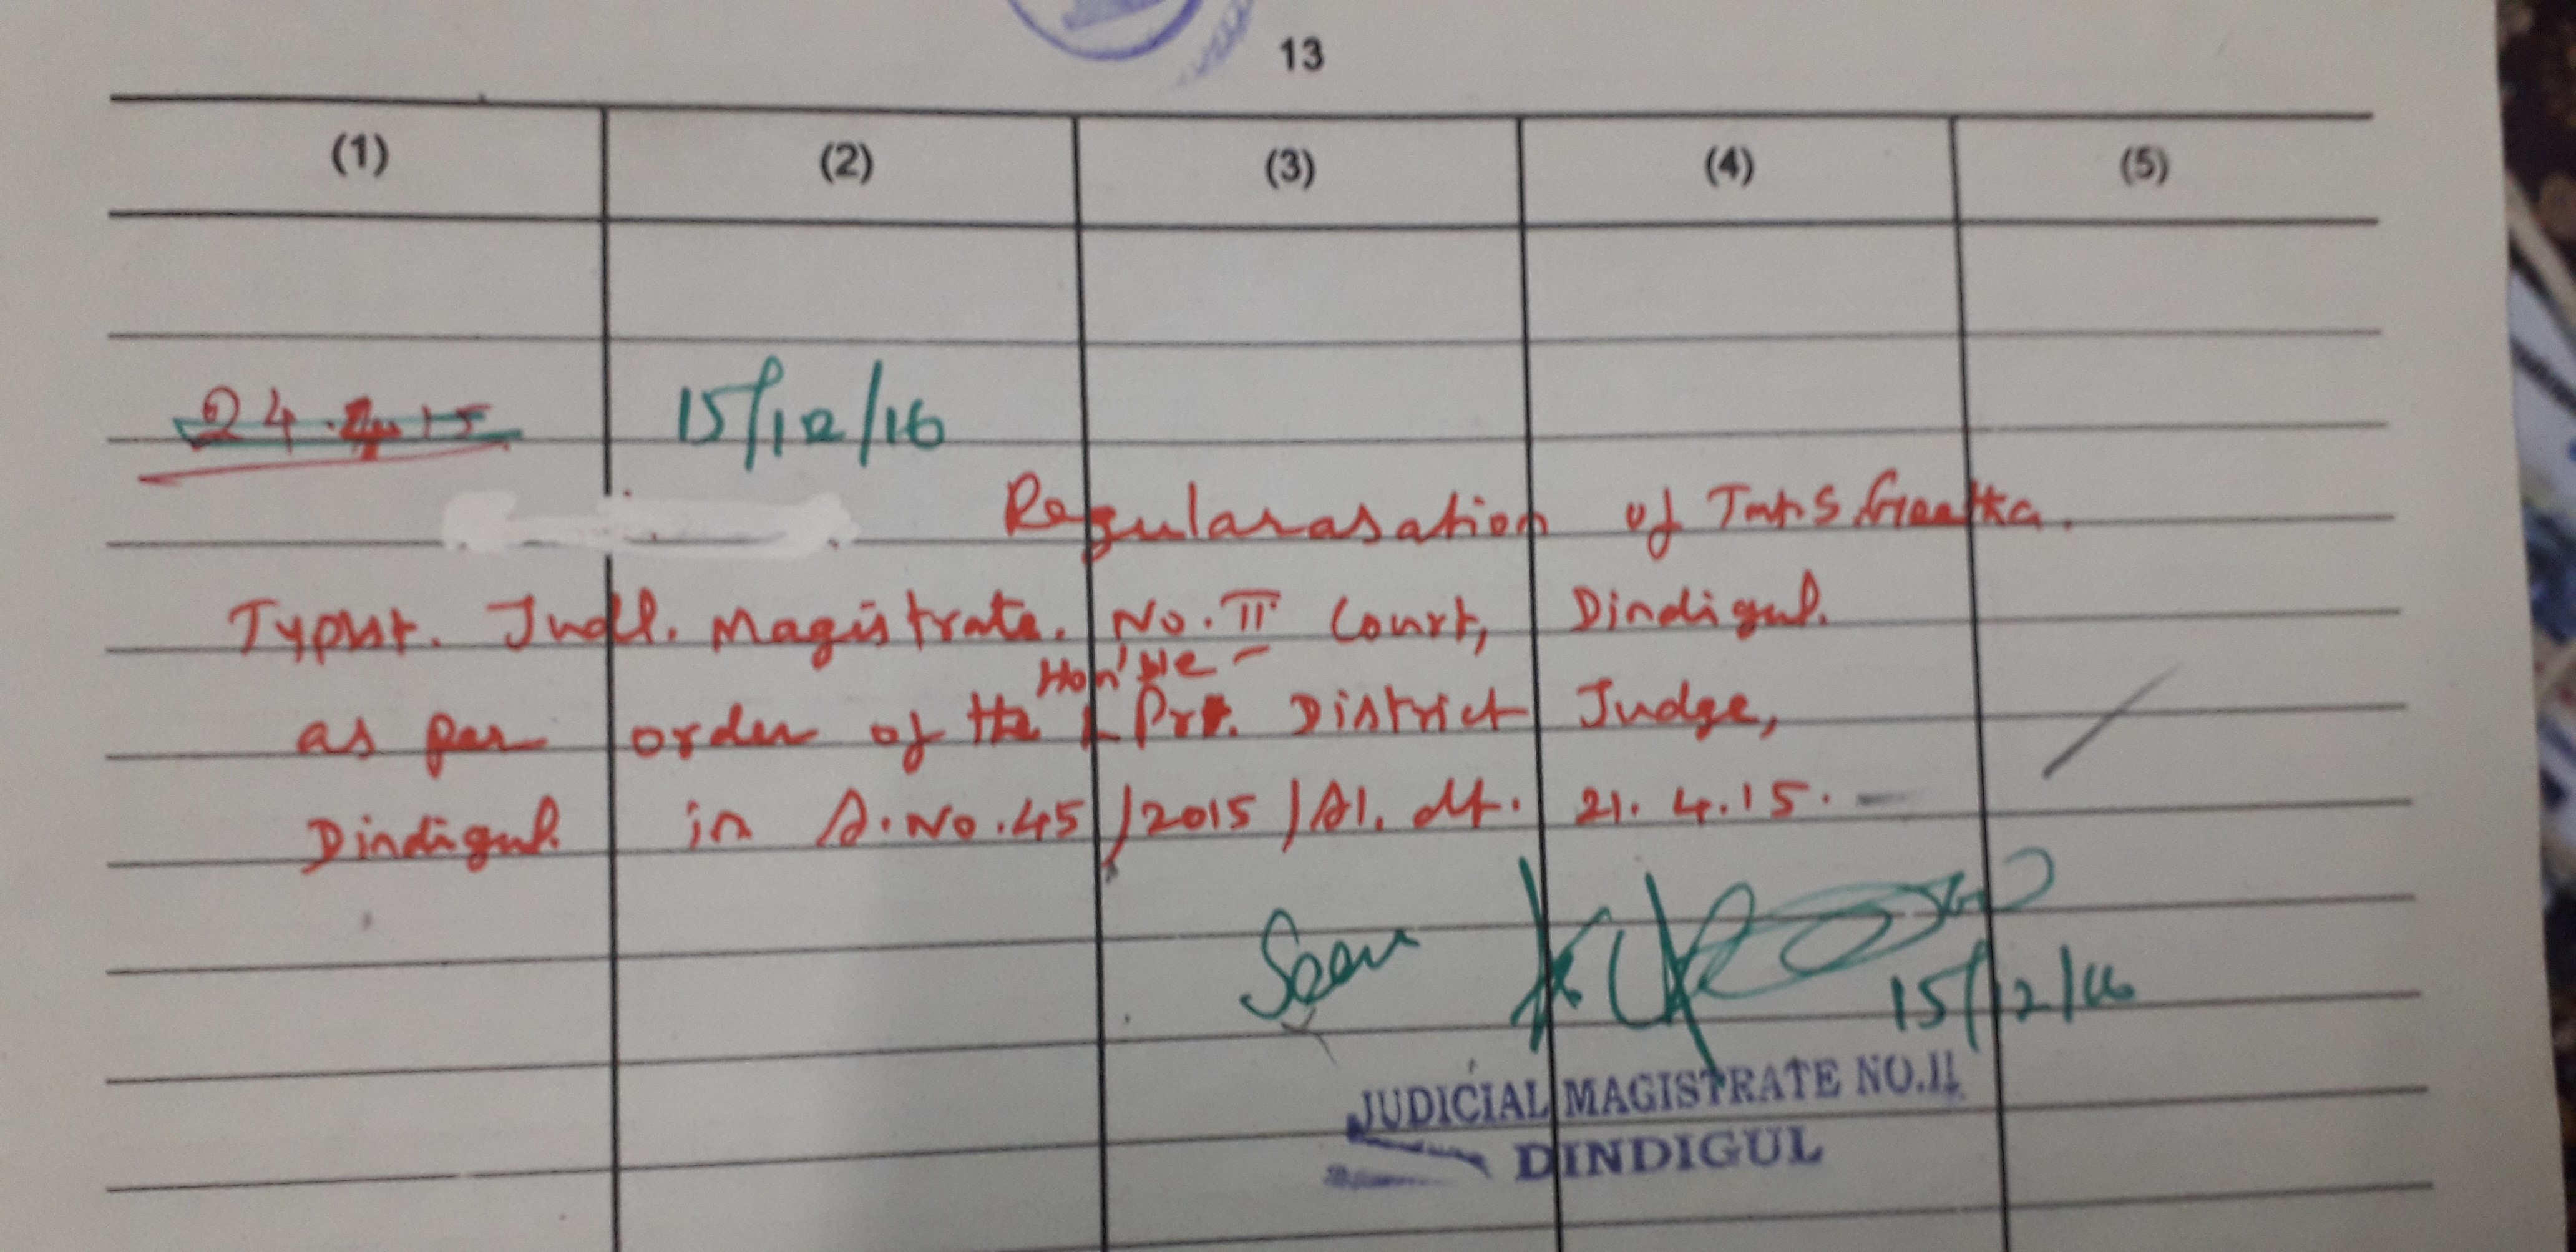 13
(1) (2) (3) (4) (5)
15/12/16
Regularasation of Tmt. S. Geetha.
Typist. Judl. Magistrate. No. II Court, Dindigul.
Hon'ble
as per order of the Prl. District Judge,
Dindigul. in A.No.45/2015/A1. dt. 21.4.15.
Seen
15/12/16
JUDICIAL MAGISTRATE NO.II
DINDIGUL